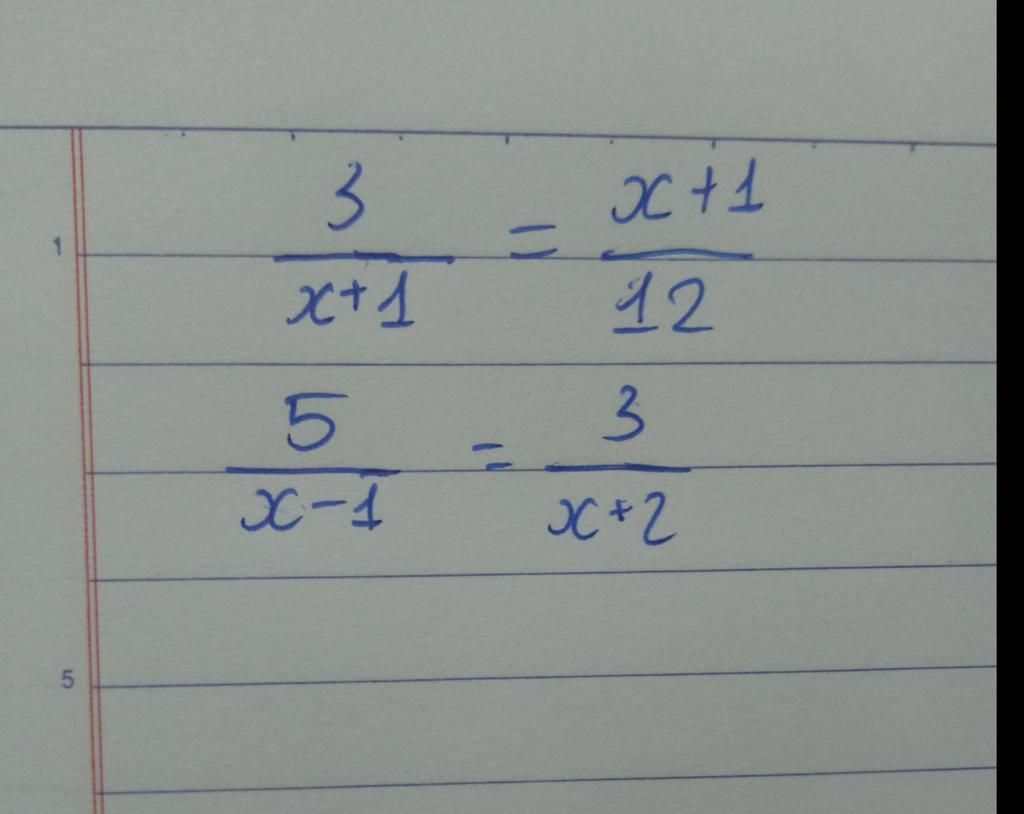 1 3/(x+1) = (x+1)/12
5/(x-1) = 3/(x+2)
5